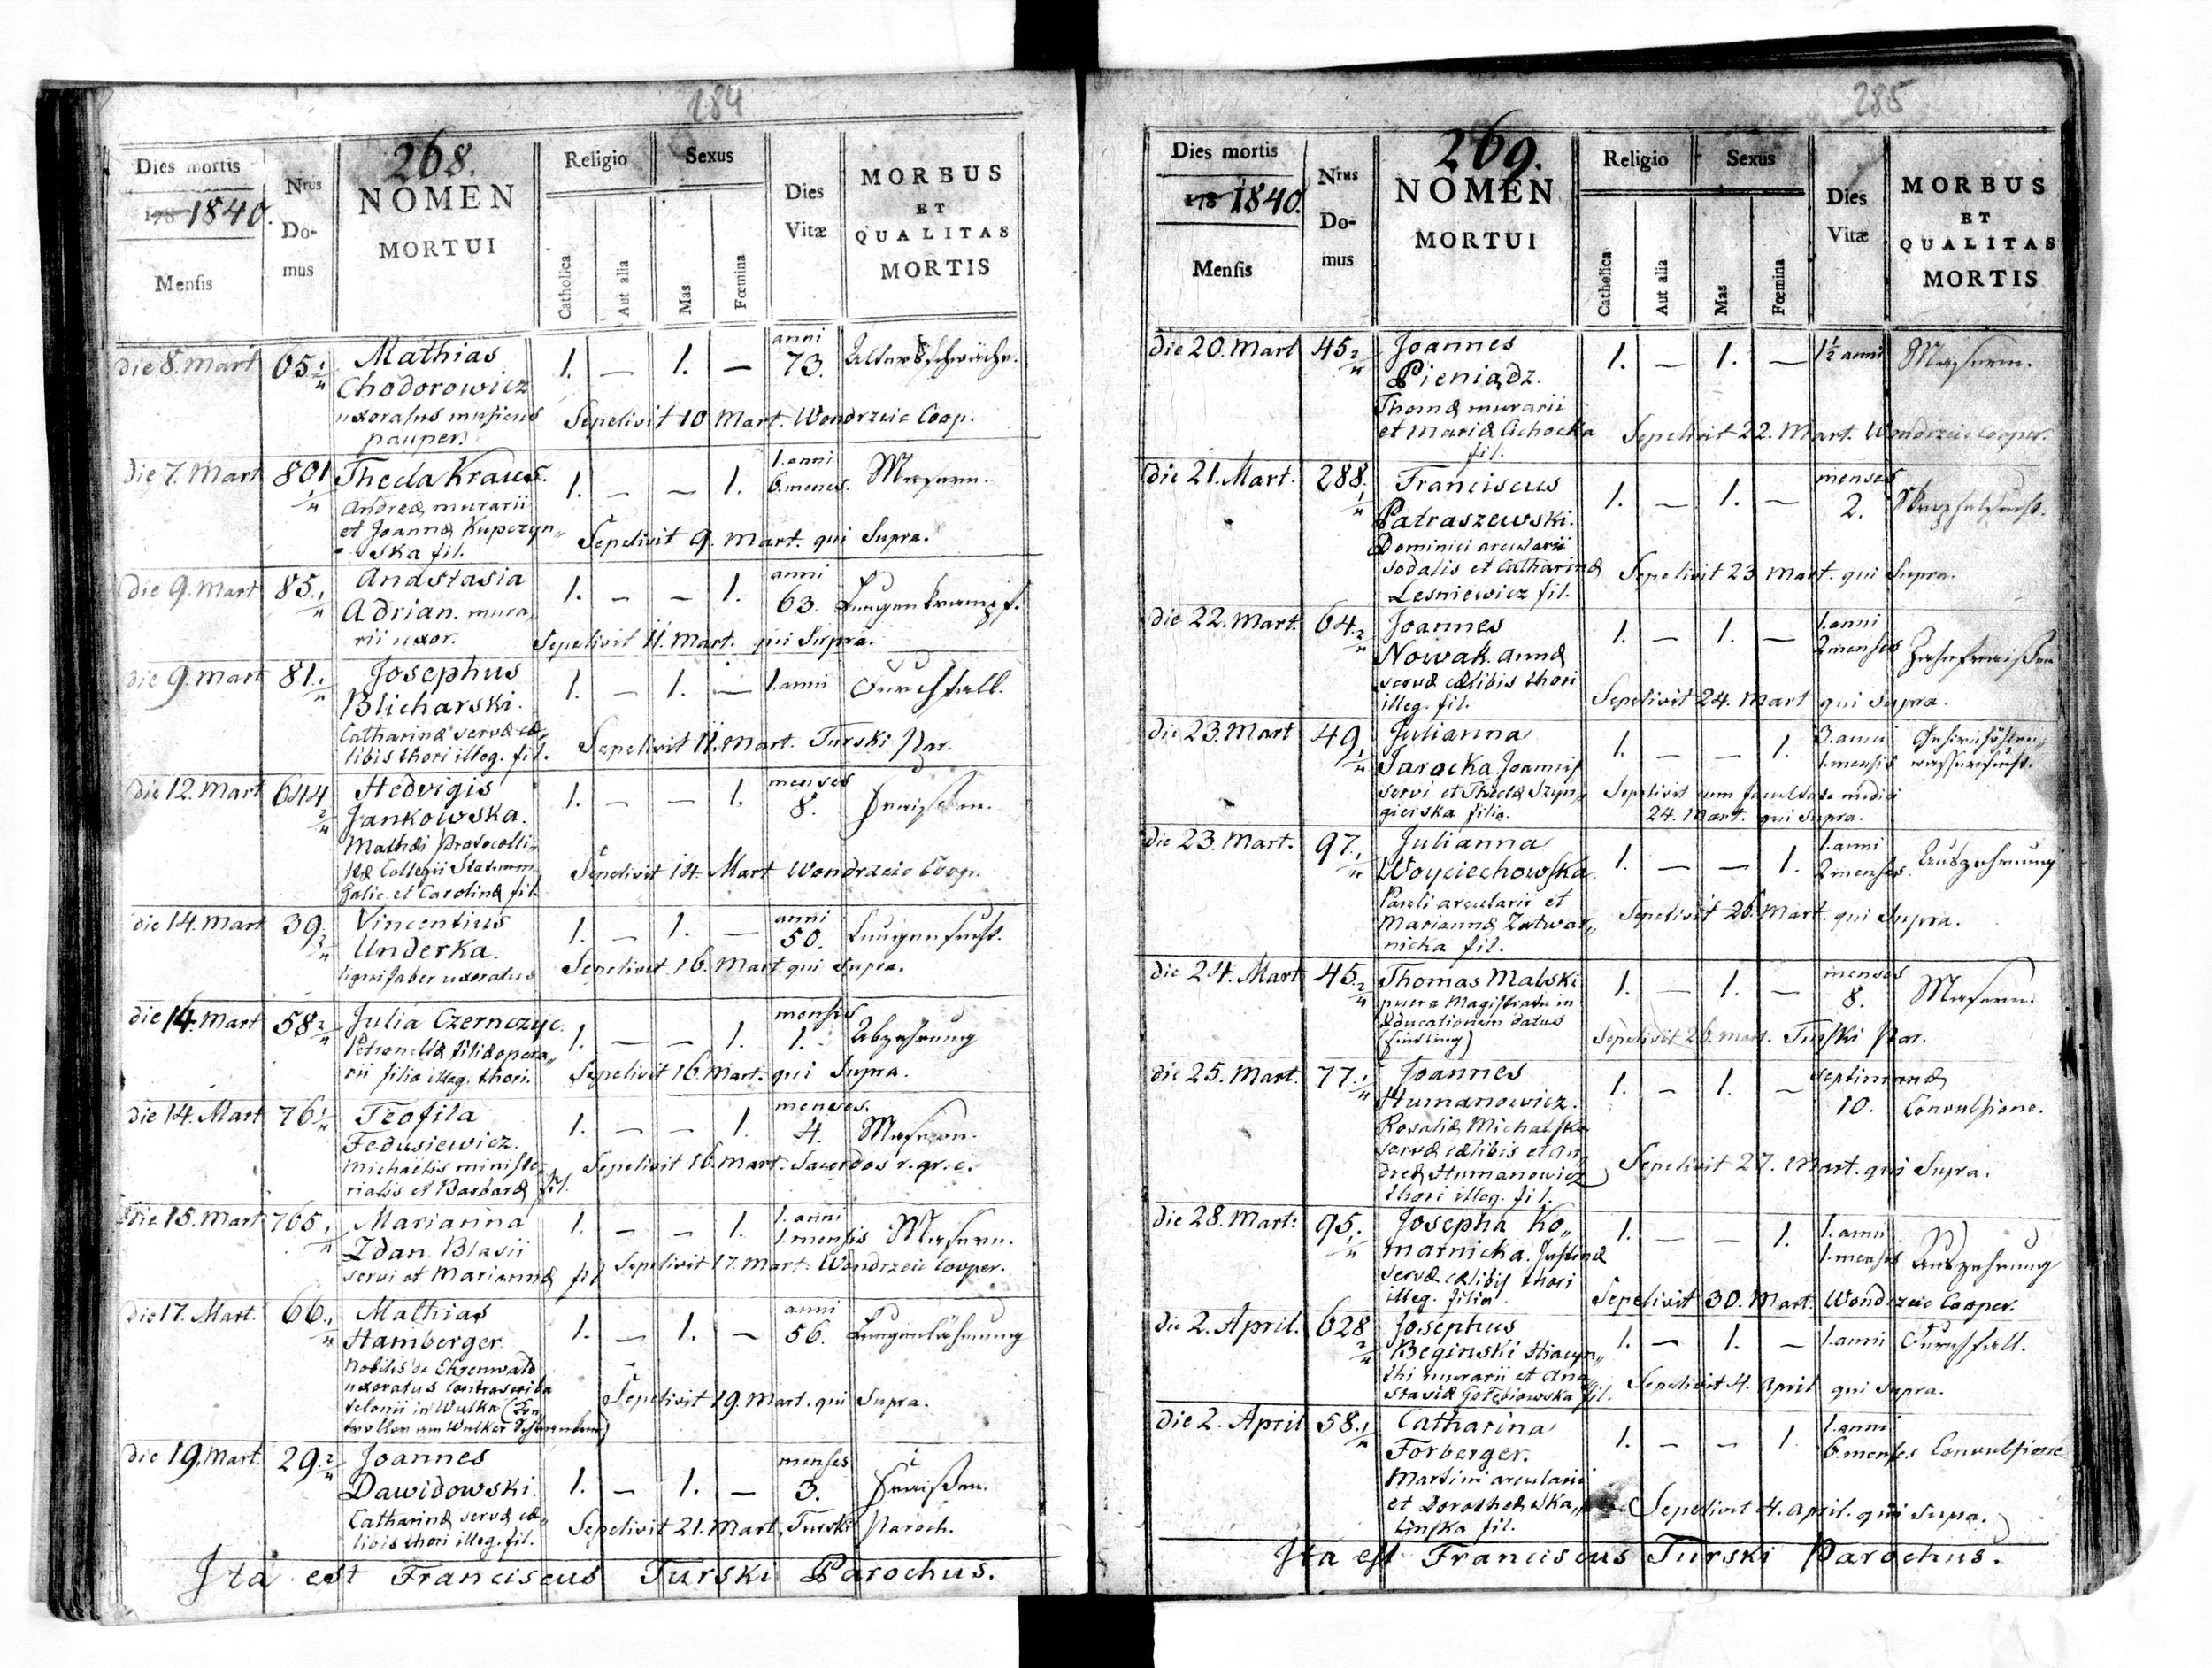 284
268.
Dies mortis
178 1840.
Mensis
Nrus Domus
NOMEN
MORTUI
Religio
Catholica
Aut alia
Sexus
Mas
Fœmina
Dies
Vitæ
MORBUS
ET
QUALITAS
MORTIS
die 8. Mart 65 1/4 Mathias 1. — 1. — anni 73. Altersschwäche.
Chodorowicz
uxoratus musicus
pauper. Sepelivit 10 Mart. Wondrzeic Coop.
die 7. Mart 801 1/4 Thecla Kraus. 1. — — 1. 1. anni 6. menses. Masern.
Andreæ murarii
et Joannæ Kupczyn„
ska fil. Sepelivit 9. Mart. qui Supra.
die 9. Mart 85. 1/4 Anastasia 1. — — 1. anni 63. Lungenkrampf.
Adrian. mura„
rii uxor. Sepelivit 11. Mart. qui Supra.
die 9. Mart 81. 1/4 Josephus 1. — 1. — 1. anni Durchfall.
Blicharski.
Catharinæ servæ cæ„
libis thori illeg. fil. Sepelivit 11. Mart. Turski Par.
die 12. Mart 644 2/4 Hedvigis 1. — — 1. menses 8. Fraisen.
Jankowska.
Mathæi Protocolli„
stæ Collegii Statuum
Galic et Carolinæ fil. Sepelivit 14. Mart Wondrzeic Coop.
die 14. Mart 39. 2/4 Vincentius 1. — 1. — anni 50. Lungensucht.
Underka.
lignifaber uxoratus Sepelivit 16. Mart. qui Supra.
die 14. Mart 58 2/4 Julia Czernczyc. 1. — — 1. mensis 1. Abzehrung
Petronellæ filiæ opera„
rii filia illeg. thori. Sepelivit 16 Mart. qui Supra.
die 14. Mart 76 1/4 Teofila 1. — — 1. menses. 4. Masern.
Fedusiewicz.
Michaelis ministe„
rialis et Barbaræ fil. Sepelivit 16. Mart. Sacerdos r. gr. c.
die 15. Mart 765. 1/4 Marianna 1. — — 1. 1. anni 1. mensis Masern.
Zdan. Blasii
servi et Mariannæ fil Sepelivit 17. Mart. Wondrzeic Cooper.
die 17. Mart. 66. 1/4 Mathias 1. — 1. — anni 56. Lungenlähmung
Hamberger
Nobilis de Ehrenwald
uxoratus Contrascriba
telonii in Wulka (Con„
trollor am Wulker Schranken) Sepelivit 19. Mart. qui Supra.
die 19. Mart. 29. 2/4 Joannes 1. — 1. — menses 3. Fraißen.
Dawidowski.
Catharinæ servæ cæ„
libis thori illeg. fil. Sepelivit 21. Mart. Turski Paroch.
Ita est Franciscus Turski Parochus.
285
269.
Dies mortis
178 1840.
Mensis
Nrus Domus
NOMEN
MORTUI
Religio
Catholica
Aut alia
Sexus
Mas
Fœmina
Dies
Vitæ
MORBUS
ET
QUALITAS
MORTIS
die 20. Mart 45 2/4 Joannes 1. — 1. — 1½ anni Masern.
Pieniądz.
Thomæ murarii
et Mariæ Cichocka
fil. Sepelivit 22. Mart. Wondrzeic Cooper.
die 21. Mart. 288. 1/4 Franciscus 1. — 1. — menses 2.
Patraszewski.
Dominici arcularii
sodalis et Catharinæ
Lesniewicz fil. Sepelivit 23 Mart. qui Supra.
die 22. Mart. 64. 2/4 Joannes 1. — 1. — 1. anni 2 menses Zahnfraißen
Nowak. Annæ
servæ cælibis thori
illeg. fil. Sepelivit 24. Mart qui Supra.
die 23. Mart 49. 1/4 Julianna 1. — — 1. 3. anni 1. mensis Gehirnhöhlen„
wassersucht.
Jarocka. Joannis
servi et Theclæ Szyn„
gierska filia. Sepelivit cum facultate medici
24. Mart. qui Supra.
die 23. Mart. 97. 1/4 Julianna 1. — — 1. 1. anni 2 menses. Auszehrung
Woyciechowska.
Pauli arcularii et
Mariannæ Zatwar„
nicka fil. Sepelivit 26. Mart. qui Supra.
die 24. Mart 45. 2/4 Thomas Malski 1. — 1. — menses 8. Masern.
puer a Magistratu in
Educationem datus
(Findling) Sepelivit 26. Mart. Turski Par.
die 25. Mart. 77. 1/4 Joannes 1. — 1. — septimanæ 10. Convulsione.
Humanowicz.
Rosaliæ Michalska
servæ cælibis et An„
dreæ Humanowicz
thori illeg. fil. Sepelivit 27. Mart. qui Supra.
die 28. Mart: 95. 1/4 Josepha Ko„ 1. — — 1. 1. anni 1. mensis Auszehrung
marnicka. Justinæ
servæ cælibis thori
illeg. filia. Sepelivit 30. Mart. Wondrzeic Cooper.
die 2. April. 628 2/4 Josephus 1. — 1. — 1. anni Durchfall.
Beginski Hiacyn„
thi murarii et Ana
stasiæ Gołębiowska fil. Sepelivit 4. April qui Supra.
die 2. April 58. 1/4 Catharina 1. — — 1 1. anni 6. menses Convulsione
Forberger.
Martini arcularii
et Dorotheæ Ska„
linska fil. Sepelivit 4. April. qui Supra.
Ita est Franciscus Turski Parochus.